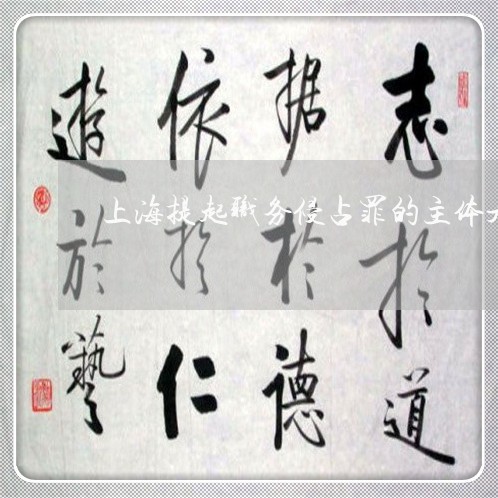 志於道
据於德
依於仁
遊於藝
上海提起職务侵占罪的主体